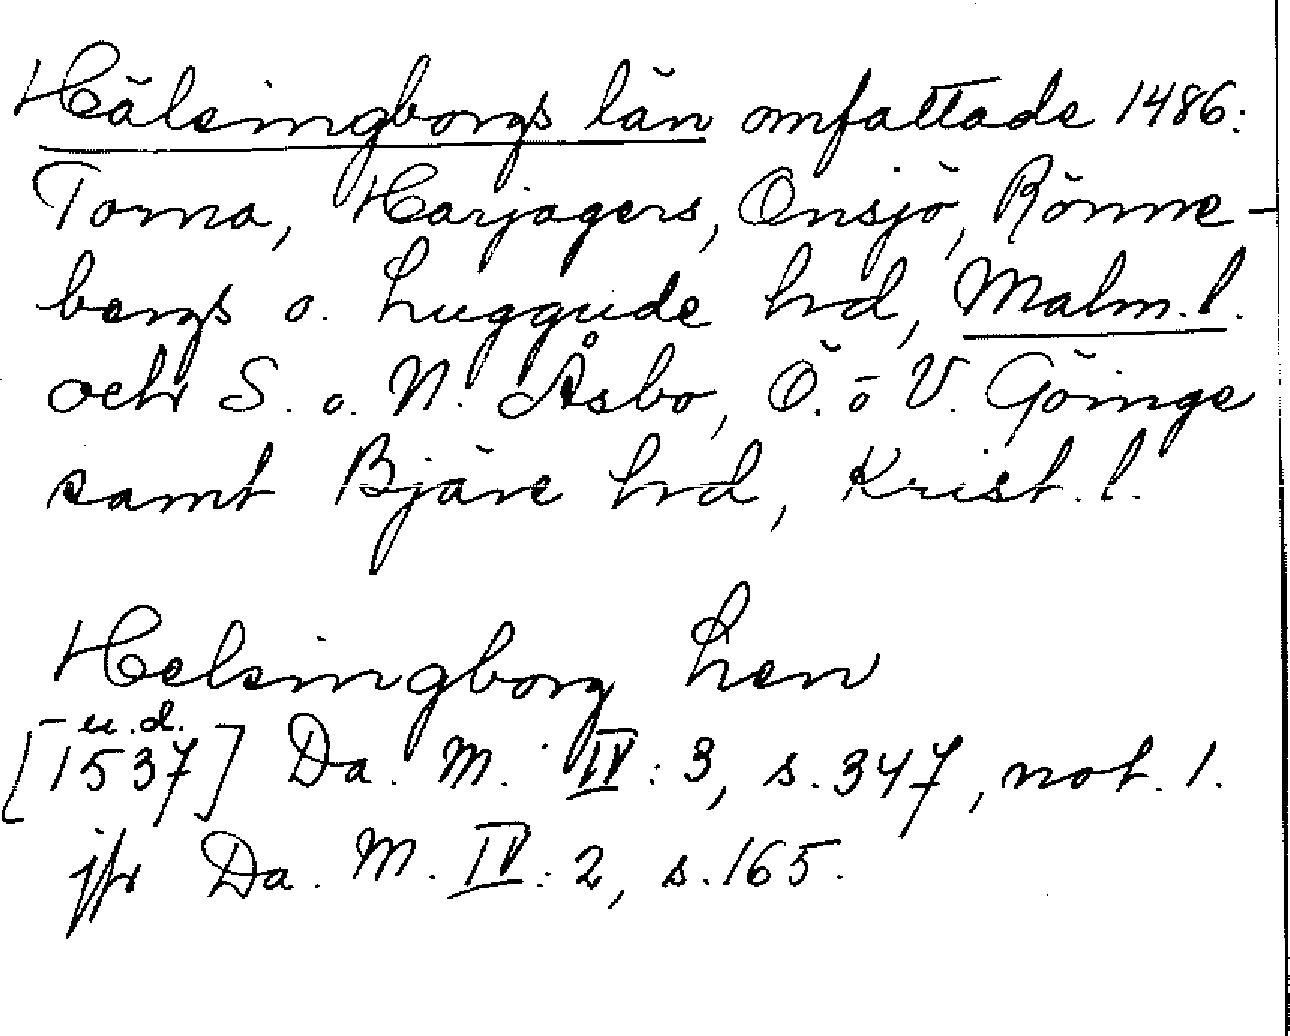 Hälsingborgs län omfattade 1486:
Torna, Harjagers, Onsjö, Rönne-
bergs o. Luggude hrd, Malm. l.
och S. o. N. Åsbo, Ö. o V. Göinge
samt Bjäre hrd, Krist. l.
Helsingborg Len
u.d.
[1537] Da. M. IV: 3, s. 347, not. 1.
jfr Da. M. IV: 2, s. 165.